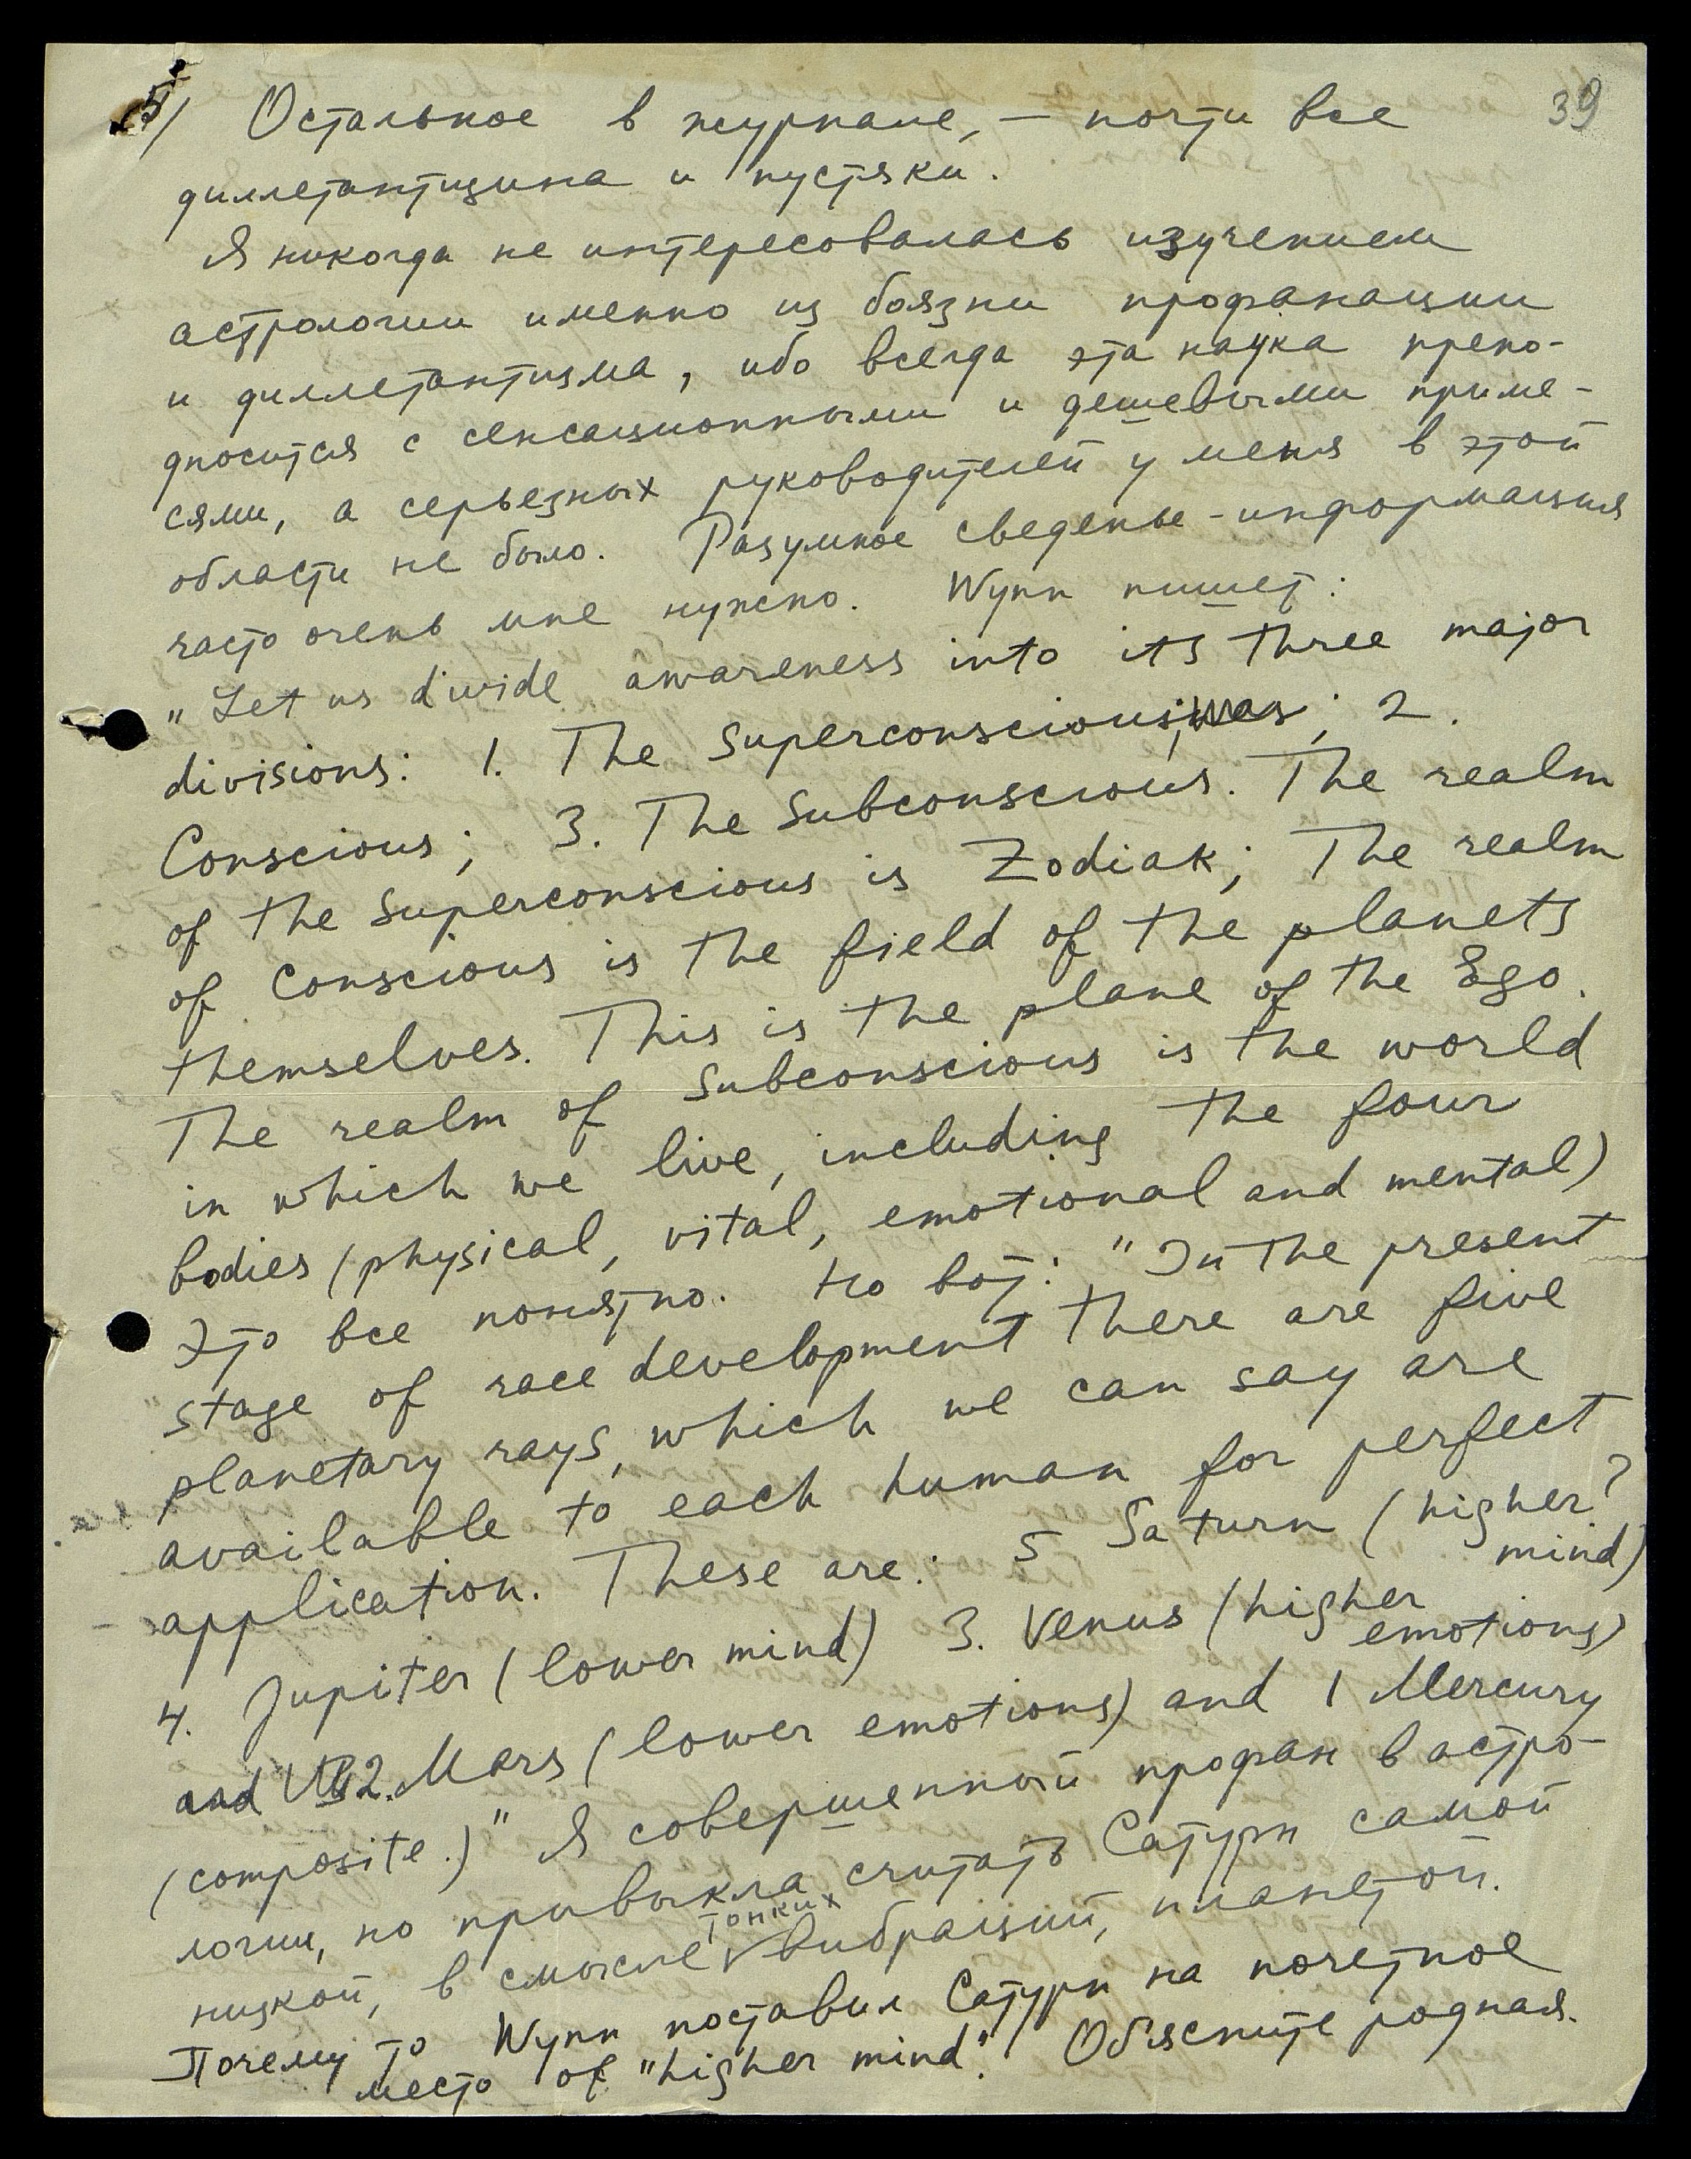 5/ Остальное в журнале, — почти все 39
диллетантщина и пустяки.
Я никогда не интересовалась изучением
астрологии именно из боязни профанации
и диллетантизма, ибо всегда эта наука препо-
дносится с сенсационными и дешевыми приме-
сями, а серьезных руководителей у меня в этой
области не было. Разумное сведенье-информация
часто очень мне нужно. Wynn пишет:
„Let us divide awareness into its three major
divisions: 1. The Superconscious; 2.
Conscious; 3. The Subconscious. The realm
of the Superconscious is Zodiak; The realm
of Conscious is the field of the planets
themselves. This is the plane of the Ego.
The realm of Subconscious is the world
in which we live, including the four
bodies (physical, vital, emotional and mental)
Это все понятно. Но вот: "In the present
stage of race development there are five
planetary rays, which we can say are
available to each human for perfect
application. These are: 5 Saturn (higher ?
mind)
4. Jupiter (lower mind) 3. Venus (higher
emotions)
and 2. Mars (lower emotions) and 1 Mercury
(composite.)" Я совершенный профан в астро-
логии, но привыкла считать Сатурн самой
низкой, в смысле тонких вибраций, планетой.
Почему то Wynn поставил Сатурн на почетное
место of "higher mind". Обясните родная.